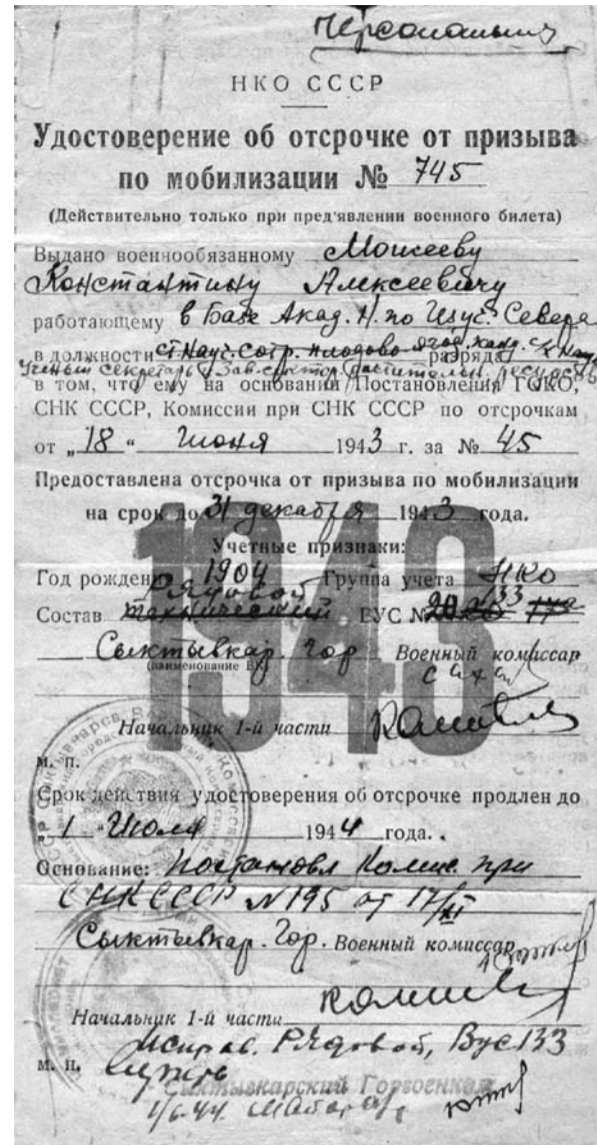 Персонально
НКО СССР
Удостоверение об отсрочке от призыва
по мобилизации № 745
(Действительно только при пред'явлении военного билета)
Выдано военнообязанному Моисееву
Константину Алексеевичу
работающему в Базе Акад. Н. по Изуч. Севера
в должности ст. Науч. Сотр. плодово-ягод. разряда
Ученый секретарь Зав. сектор. растительн. ресурсов
в том, что ему на основании Постановления ГОКО,
СНК СССР, Комиссии при СНК СССР по отсрочкам
от „18 “ Июня 1943 г. за № 45
Предоставлена отсрочка от призыва по мобилизации
на срок до 31 декабря 1943 года.
1943
Учетные признаки:
Год рождения 1904 Группа учета НКО
Рядовой 133
Состав технический ВУС №
Сыктывкар. Гор Военный комиссар
(наименование ВК)
Начальник 1-й части
м. п.
Срок действия удостоверения об отсрочке продлен до
„1 “ Июля 1944 года.
Основание: Постановл Комис. при
СНК СССР N195 от 17/XI
Сыктывкар. Гор. Военный комиссар
Начальник 1-й части
Исправ. Рядовой, Вус 133
м. п.
Сыктывкарский Горвоенком
1/6.44